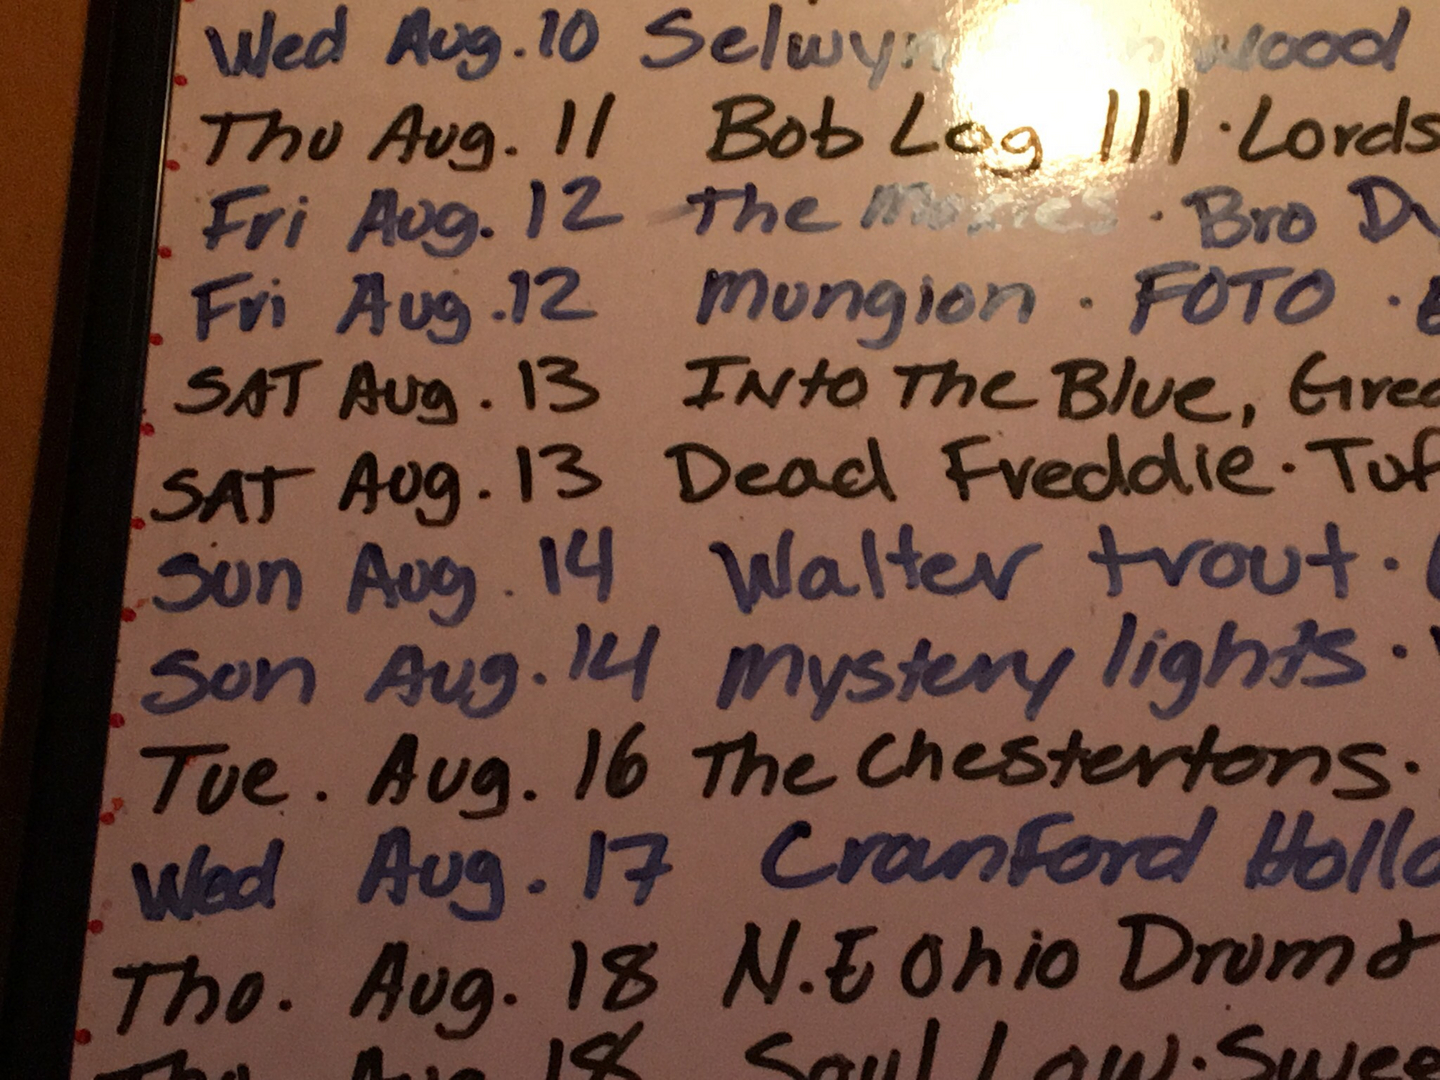 Wed Aug.10 Selwyn wood
Thu Aug. 11 Bob Log III · Lords
Fri Aug. 12 The Moxies · Bro Dy
Fri Aug.12 Mungion · FOTO ·
SAT Aug. 13 INto The Blue, Gree
SAT Aug. 13 Dead Freddie · Tuf
Sun Aug. 14 Walter trout ·
Sun Aug. 14 Mystery lights ·
Tue. Aug. 16 The Chestertons.
Wed Aug. 17 CranFord Hollo
Thu. Aug. 18 N.E Ohio Drum &
Thu Aug 18 Saul Law · Swee